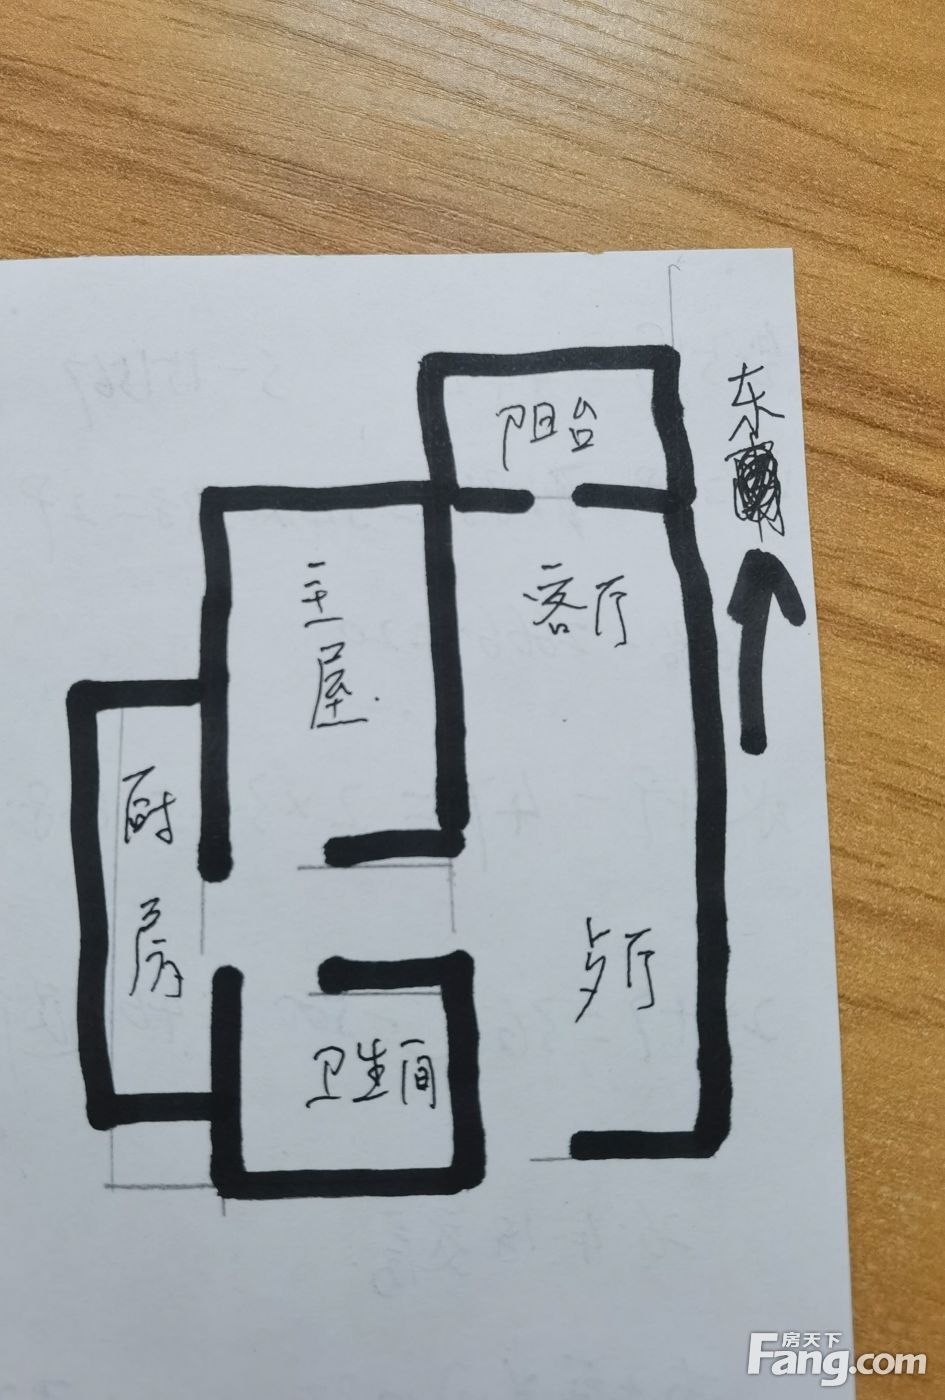 东
阳台
客厅
主屋
厨房
厅
卫生间
房天下
Fang.com